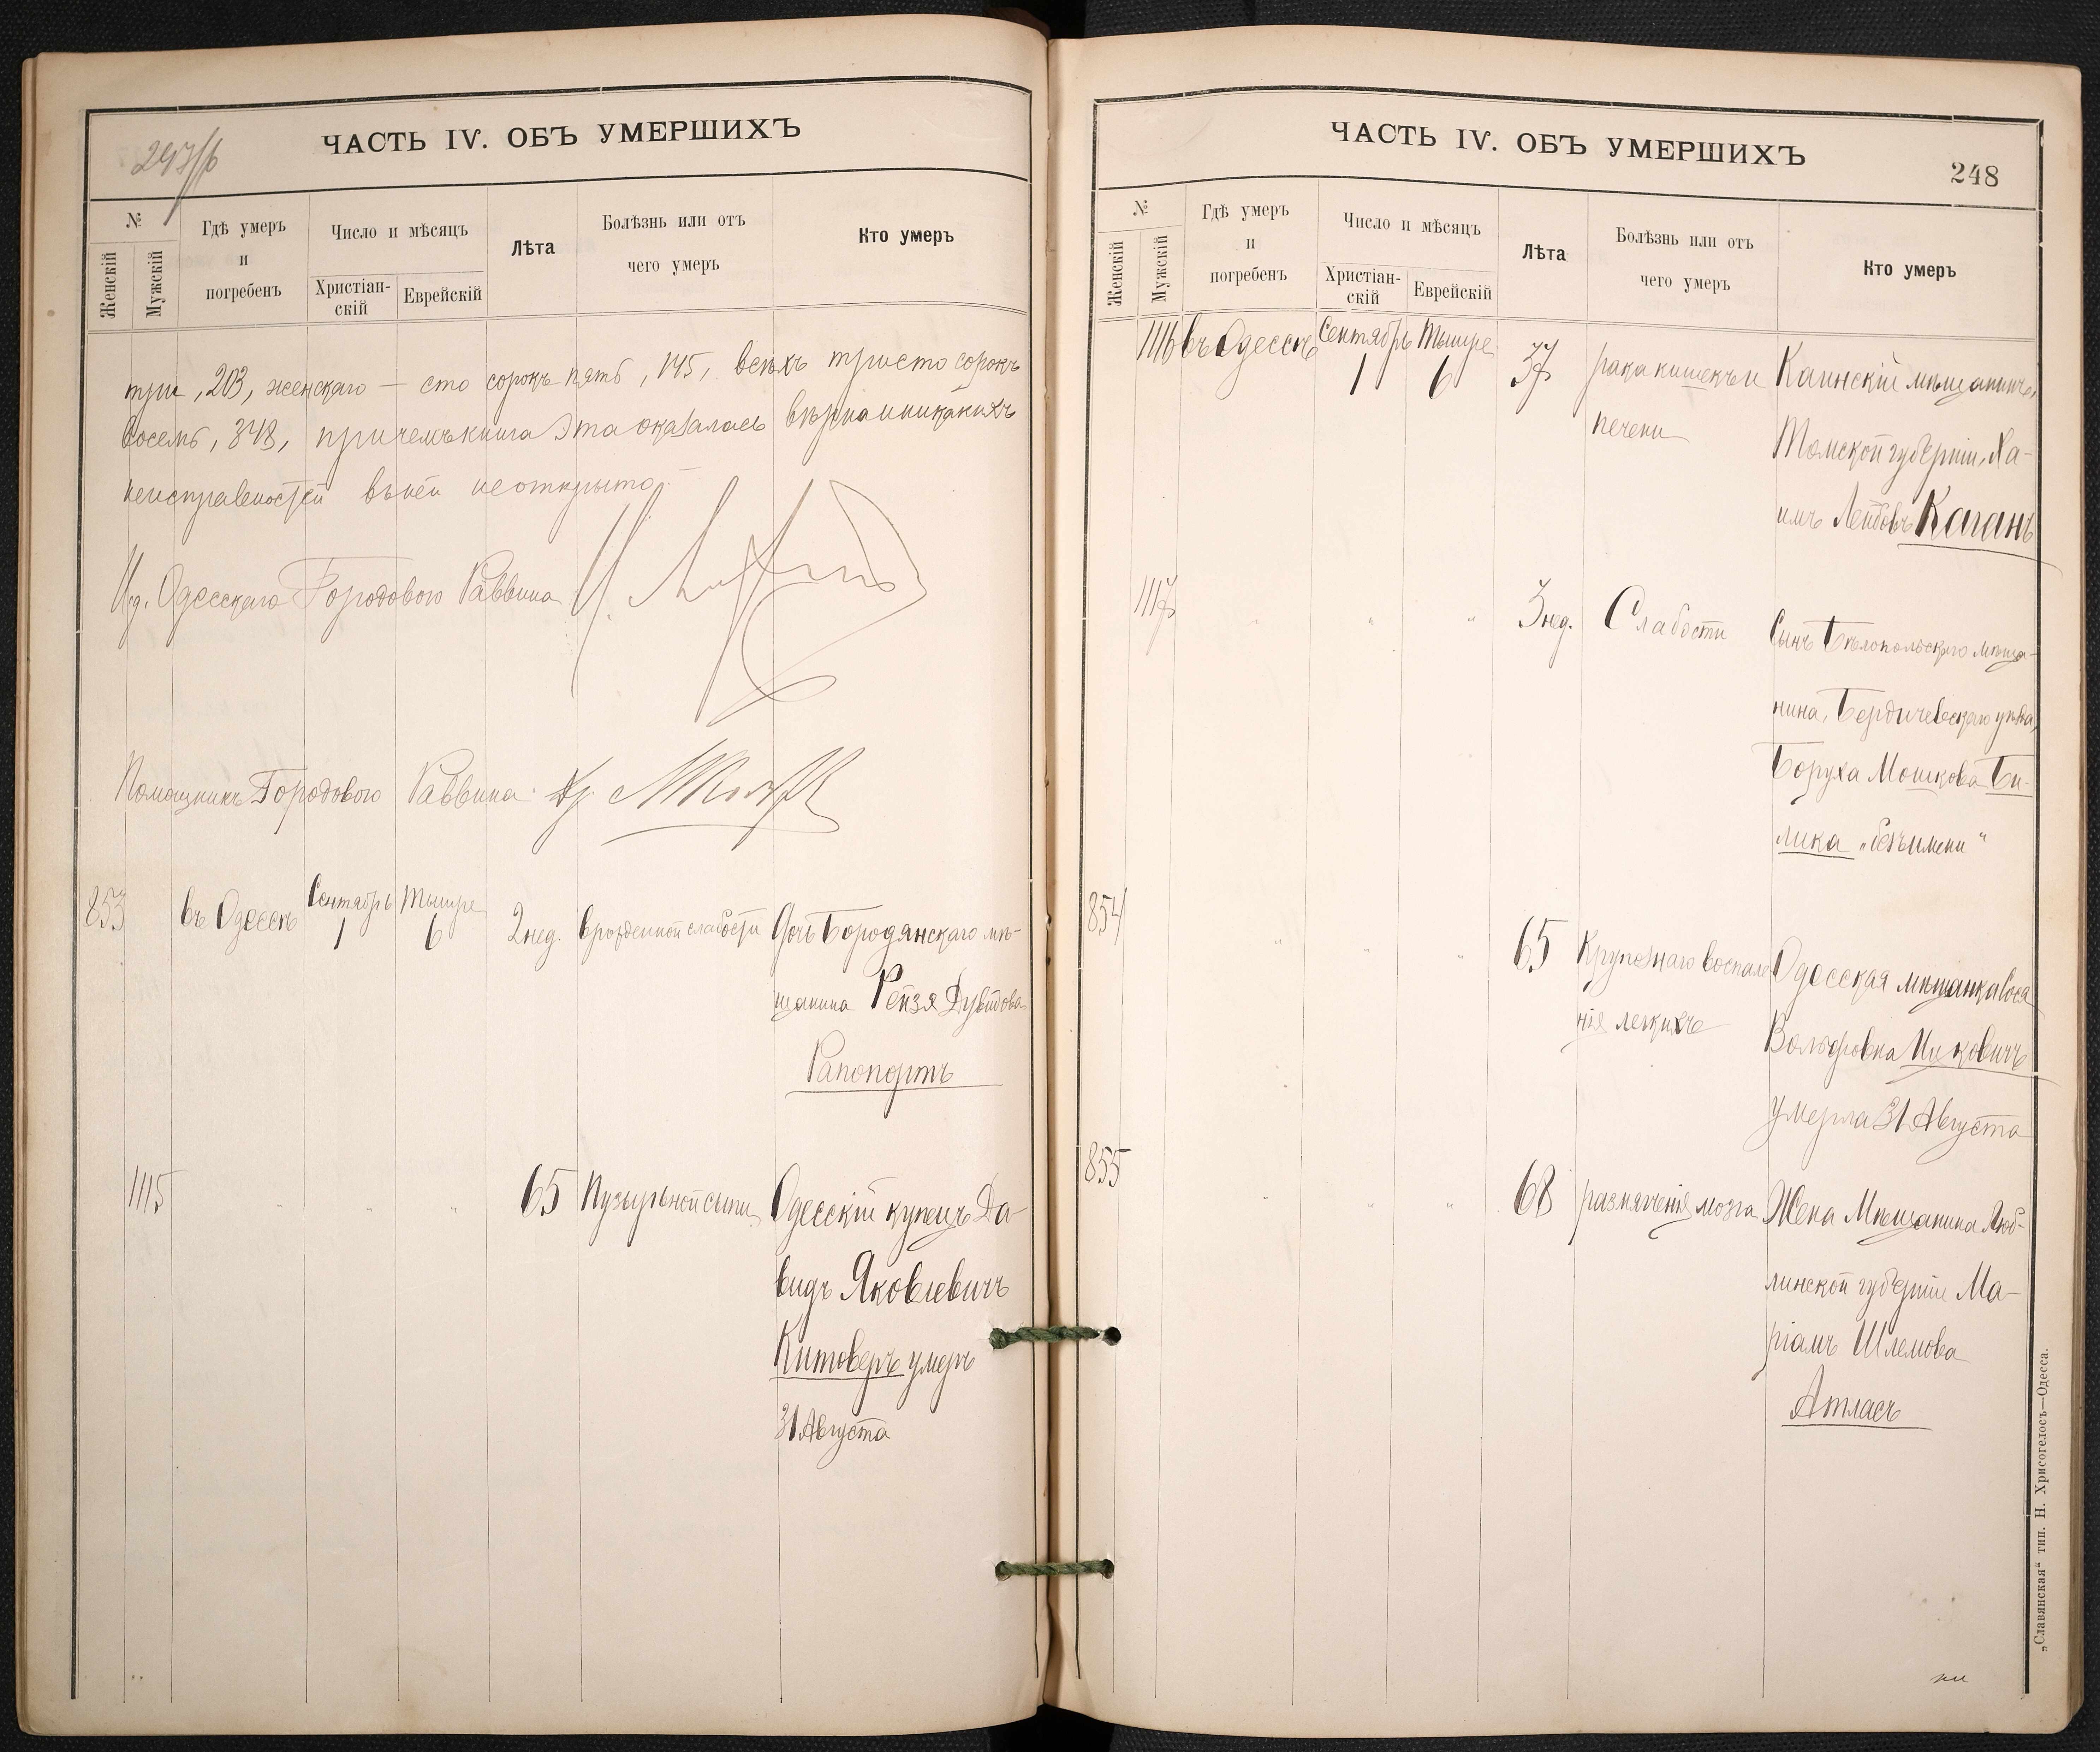 247/б
ЧАСТЬ IV. ОБЪ УМЕРШИХЪ
№
Женскій
Мужскій
Гдѣ умеръ
и
погребенъ
Число и мѣсяцъ
Христіан-
скій
Еврейскій
Лѣта
Болѣзнь или отъ
чего умеръ
Кто умеръ
три, 203, женскаго — сто сорокъ пять, 145, всѣхъ триста сорокъ
восемь, 348, причемъ книга эта оказалась вѣрна и никакихъ
неисправностей въ ней не открыто.
И.д. Одесскаго Городового Раввина
Помощникъ Городового Раввина
853
въ Одессѣ
Сентябрь
1
Тышре
6
2 нед.
врожденной слабости
Дочь Бородянскаго мѣ-
щанина Рейзя Дувидова
Рапопортъ
1115
" " "
65
Пузырьной сыпи
Одесскій купецъ Да-
видъ Яковлевичъ
Китоверъ умеръ
31 Августа
ЧАСТЬ IV. ОБЪ УМЕРШИХЪ
248
№
Женскій
Мужскій
Гдѣ умеръ
и
погребенъ
Число и мѣсяцъ
Христіан-
скій
Еврейскій
Лѣта
Болѣзнь или отъ
чего умеръ
Кто умеръ
1116
въ Одессѣ
Сентябрь
1
Тышре
6
37
рака кишекъ и
печени
Каинскій мѣщанинъ,
Томской губерніи, Ха-
имъ Лейбовъ Каганъ
1117
" " "
3 нед.
Слабости
Сынъ Бѣлопольскаго мѣща-
нина, Бердичевскаго уѣзда,
Боруха Мошкова Би-
лика „безъ имени“
854
" "
65
Крупознаго воспале
нія легкихъ
Одесская мѣщанка Бася
Вольфовна Ицковичъ
умерла 31 Августа
855
" " "
68
размягченія мозга
Жена Мѣщанина Люб-
линской губерніи Ма-
ріамъ Шлемова
Атласъ
„Славянская“ тип. Н. Хрисогелосъ—Одесса.